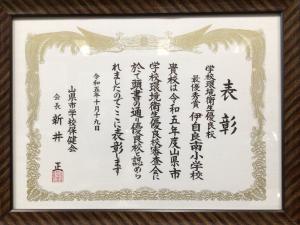 表彰
学校環境衛生優良校
最優秀賞 伊自良南小学校
貴校は令和五年度山県市
学校環境衛生優良校審査会に
於て頭書の通り優良校と認めら
れましたのでここに表彰します
令和五年十月十九日
山県市学校保健会
会長 新井 正